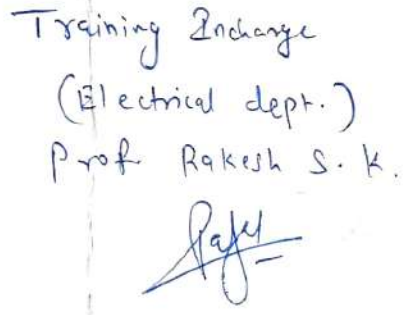 Training Incharge
(Electrical dept.)
Prof. Rakesh S. K.